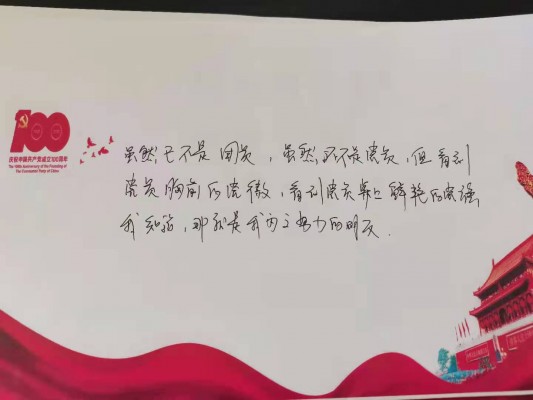 庆祝中国共产党成立100周年
The 100th Anniversary of the Founding of
The Communist Party of China
虽然已不是团员，虽然还不是党员，但看到
党员胸前的党徽，看到党员桌上鲜艳的党旗
我知道，那就是我为之努力的明天.